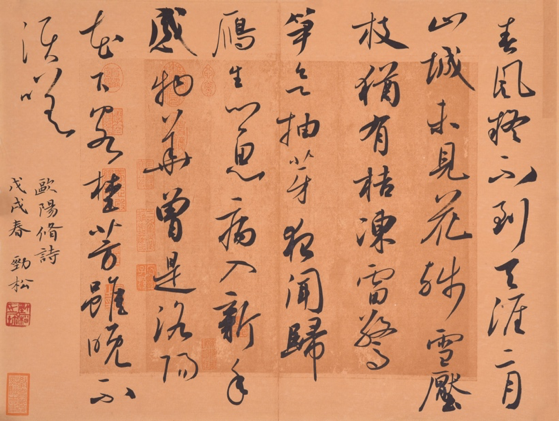 春風疑不到天涯二月
山城未見花殘雪壓
枝猶有桔凍雷驚
筍欲抽芽夜聞歸
鴈生鄉思病入新年
感物華曾是洛陽
花下客埜芳雖晚不
須嗟
歐陽脩詩
戊戌春 勁松